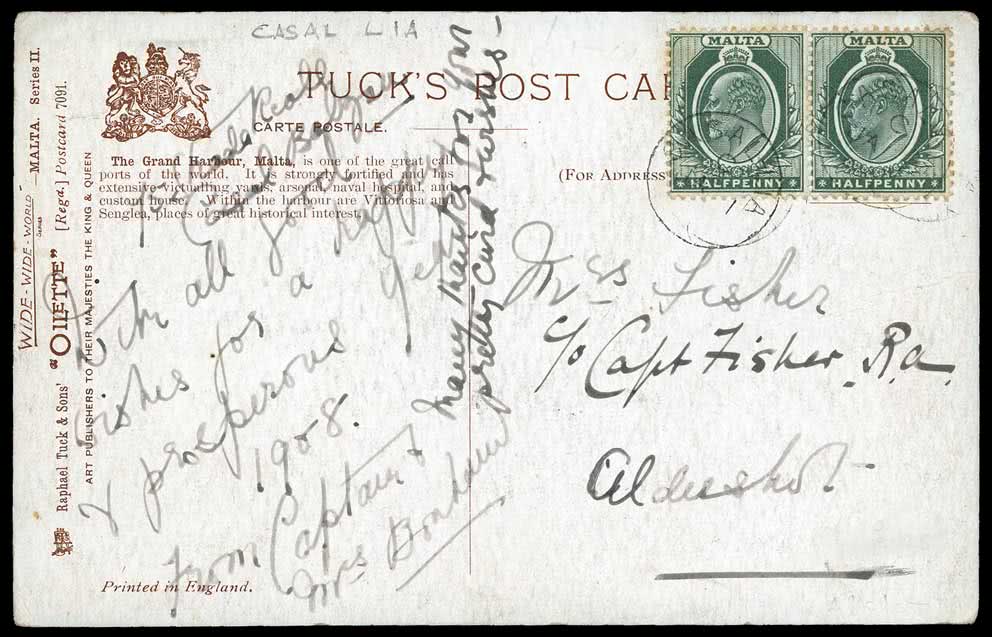 CASAL LIA
TUCK'S POST CAR
CARTE POSTALE.
(FOR ADDRESS
The Grand Harbour, Malta, is one of the great call
ports of the world. It is strongly fortified and has
extensive victualling yards, arsenal, naval hospital, and
custom house. Within the harbour are Vittoriosa and
Senglea, places of great historical interest.
WIDE-WIDE-WORLD
SERIES
MALTA. Series II.
"OILETTE" [Regd.] Postcard 7091.
Raphael Tuck & Sons'
ART PUBLISHERS TO THEIR MAJESTIES THE KING & QUEEN
With all good
wishes for a happy
& prosperous
1908.
from Captain &
Mrs Bonham
Many thanks for your
pretty card & wishes -
MALTA
HALFPENNY
MALTA
HALFPENNY
Mrs Fisher
c/o Capt Fisher. R.a.
Aldershot.
Printed in England.